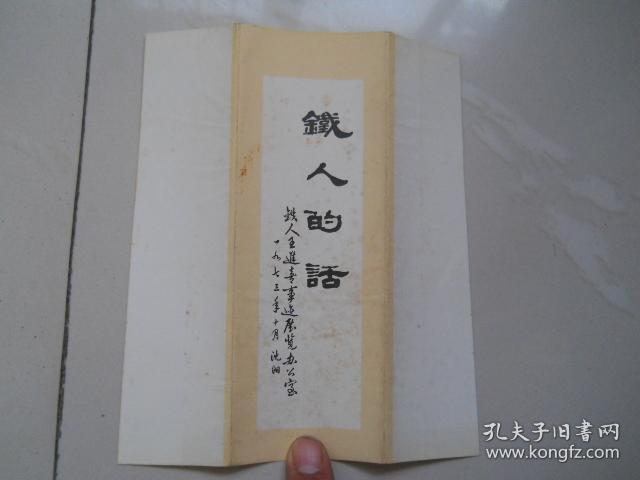 鐵人的話
铁人王進喜事迹展览办公室
一九七三年十月 沈阳
孔夫子旧書网
www.kongfz.com